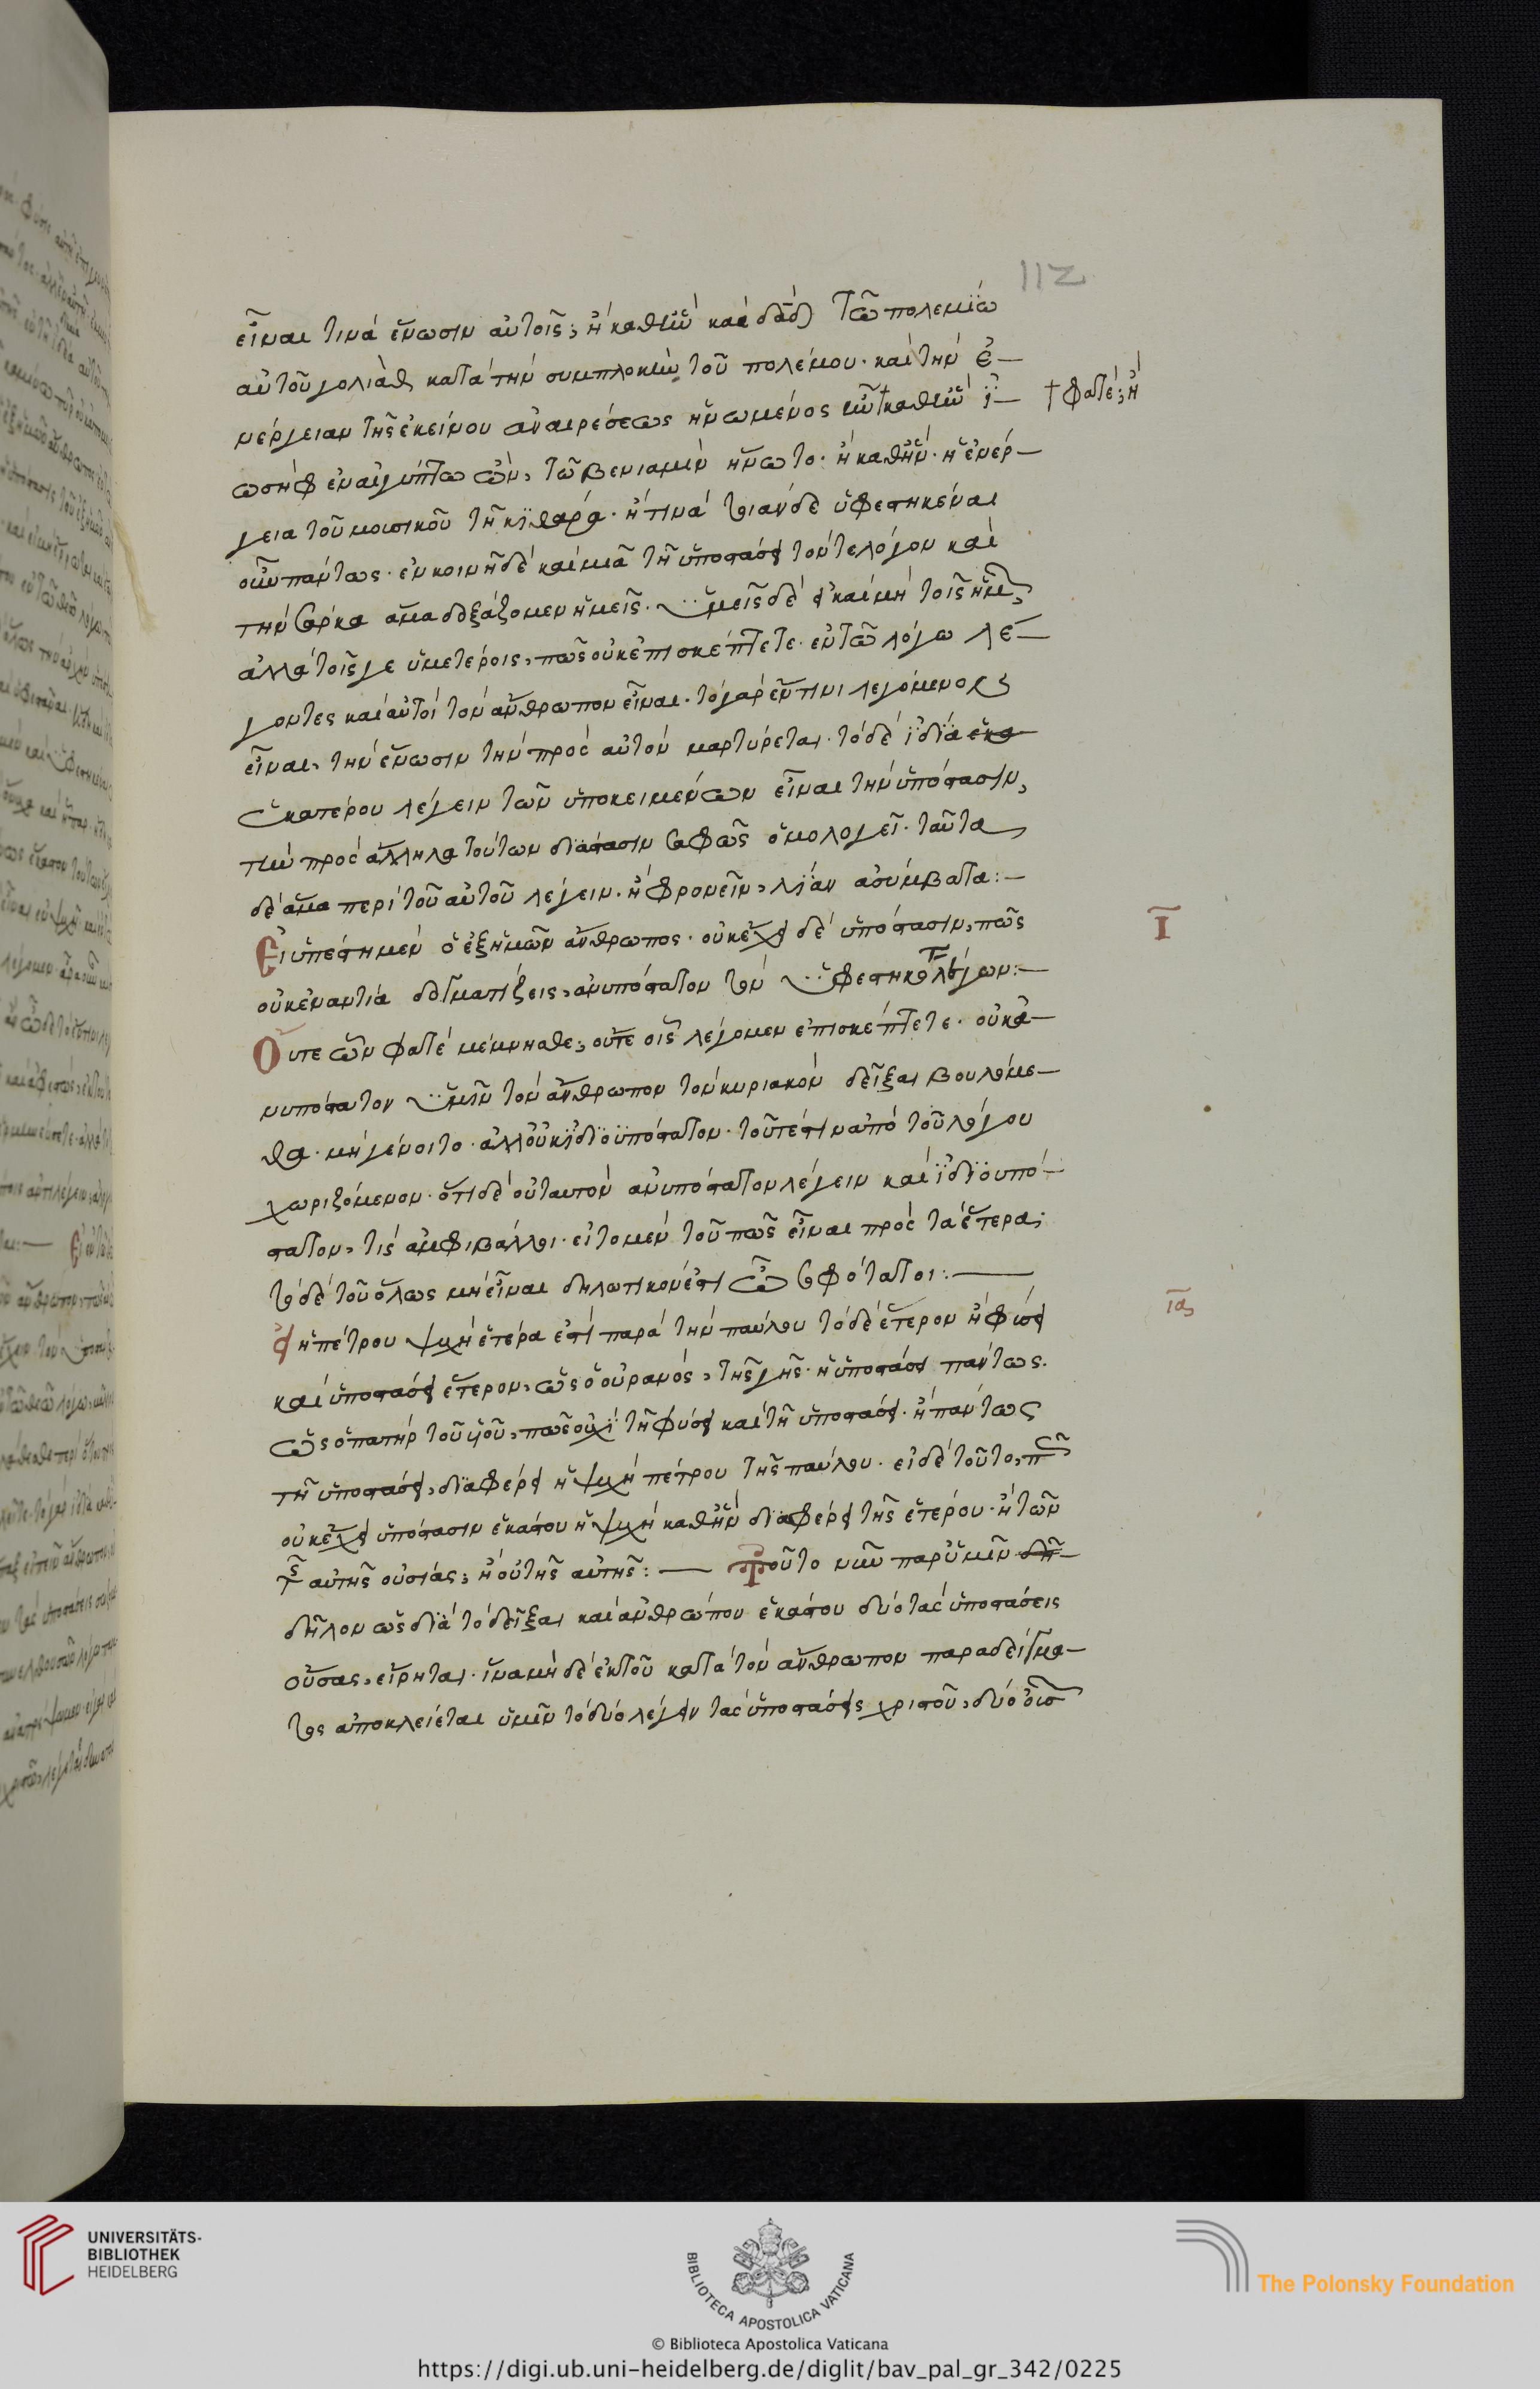 112
εἶναι τινὰ ἕνωσιν αὐτοῖς; ἢ καθ' ἣν καὶ δαδ τῶ πολεμίω
αὐτοῦ γολιὰθ κατὰ τὴν συμπλοκὴν τοῦ πολέμου· καὶ τὴν ἐ-
νέργειαν τῆς ἐκείνου ἀναιρέσεως ἡνωμένος ἦν † καθ' ἣν ἰ-
† φατέ; ἢ
ωσὴφ ἐν αἰγύπτω ὢν, τῶ βενιαμὶν ἥνωτο· ἢ καθ' ἣν· ἡ ἐνέρ-
γεια τοῦ μουσικοῦ τῆ κιθάρα· ἤ τινα τοιάνδε ὑφεστηκέναι
οὖν πάντως· ἐν κοινῆ δὲ καὶ μιᾶ τῆ ὑποστάσει τόν τε λόγον καὶ
τὴν σάρκα ἅμα δοξάζομεν ἡμεῖς. ὑμεῖς δὲ εἰ καὶ μὴ τοῖς ἡμῶν
ἀλλὰ τοῖς γε ὑμετέροις, πῶς οὐκ ἐπισκέπτετε· ἐν τῶ λόγω λέ-
γοντες καὶ αὐτοὶ τὸν ἄνθρωπον εἶναι. τὸ γὰρ ἔν τινι λεγόμενον
εἶναι, τὴν ἕνωσιν τὴν πρὸς αὐτὸν μαρτύρεται. τὸ δὲ ἰδία ἑκα
ἑκατέρου λέγειν τῶν ὑποκειμένων εἶναι τὴν ὑπόστασιν,
τὴν πρὸς ἄλληλα τούτων διάστασιν σαφῶς ὁμολογεῖ. ταῦτα
δὲ ἅμα περὶ τοῦ αὐτοῦ λέγειν. ἢ φρονεῖν, λίαν ἀσύμβατα:-
Εἰ ὑπέστη μὲν ὁ ἐξ ἡμῶν ἄνθρωπος. οὐκ ἔχει δὲ ὑπόστασιν, πῶς
Ι
οὐκ ἐναντία δογματίζεις, ἀνυπόστατον τὸν ὑφεστηκότα λέγων:-
Οὔτε ὧν φατὲ μέμνησθε; οὔτε οἷς λέγομεν ἐπισκέπτετε. οὐκ ἀ-
νυπόστατον ὑμῖν τὸν ἄνθρωπον τὸν κυριακὸν δεῖξαι βουλόμε-
θα. μὴ γένοιτο. ἀλλ' οὐκ ἰδιοϋπόστατον. τοῦτέστιν ἀπὸ τοῦ λόγου
χωριζόμενον. ὅτι δὲ οὐ ταυτὸν ἀνυπόστατον λέγειν καὶ ἰδιοϋπό-
στατον, τίς ἀμφιβάλλοι. εἰ τὸ μὲν τοῦ πῶς εἶναι πρὸς τὰ ἕτερα;
τὸ δὲ τοῦ ὅλως μὴ εἶναι δηλωτικόν ἐστι ὦ σοφώτατοι:-
ια
εἰ ἡ πέτρου ψυχὴ ἑτέρα ἐστὶ παρὰ τὴν παύλου τὸ δὲ ἕτερον ἢ φύσει
καὶ ὑποστάσει ἕτερον, ὡς ὁ οὐρανός, τῆς γῆς. ἢ ὑποστάσει πάντως.
ὡς ὁ πατὴρ τοῦ υἱοῦ, πῶς οὐχὶ τῆ φύσει καὶ τῆ ὑποστάσει. ἢ πάντως
τῆ ὑποστάσει, διαφέρει ἡ ψυχὴ πέτρου τῆς παύλου. εἰ δὲ τοῦτο, πῶς
οὐκ ἔχει ὑπόστασιν ἑκάστου ἡ ψυχὴ καθ' ἣν διαφέρει τῆς ἑτέρου. ἢ τῶν
τῆς αὐτῆς οὐσίας; ἢ οὐ τῆς αὐτῆς:- Τοῦτο νῦν παρ' ὑμῖν δη
δῆλον ὡς διὰ τὸ δεῖξαι καὶ ἀνθρώπου ἑκάστου δύο τὰς ὑποστάσεις
οὔσας, εἴρηται. ἵνα μὴ δὲ ἐκ τοῦ κατὰ τὸν ἄνθρωπον παραδείγμα-
τος ἀποκλείεται ὑμῖν τὸ δύο λέγειν τὰς ὑποστάσεις χριστοῦ, δύο
UNIVERSITÄTS-
BIBLIOTHEK
HEIDELBERG
BIBLIOTECA APOSTOLICA VATICANA
The Polonsky Foundation
© Biblioteca Apostolica Vaticana
https://digi.ub.uni-heidelberg.de/diglit/bav_pal_gr_342/0225